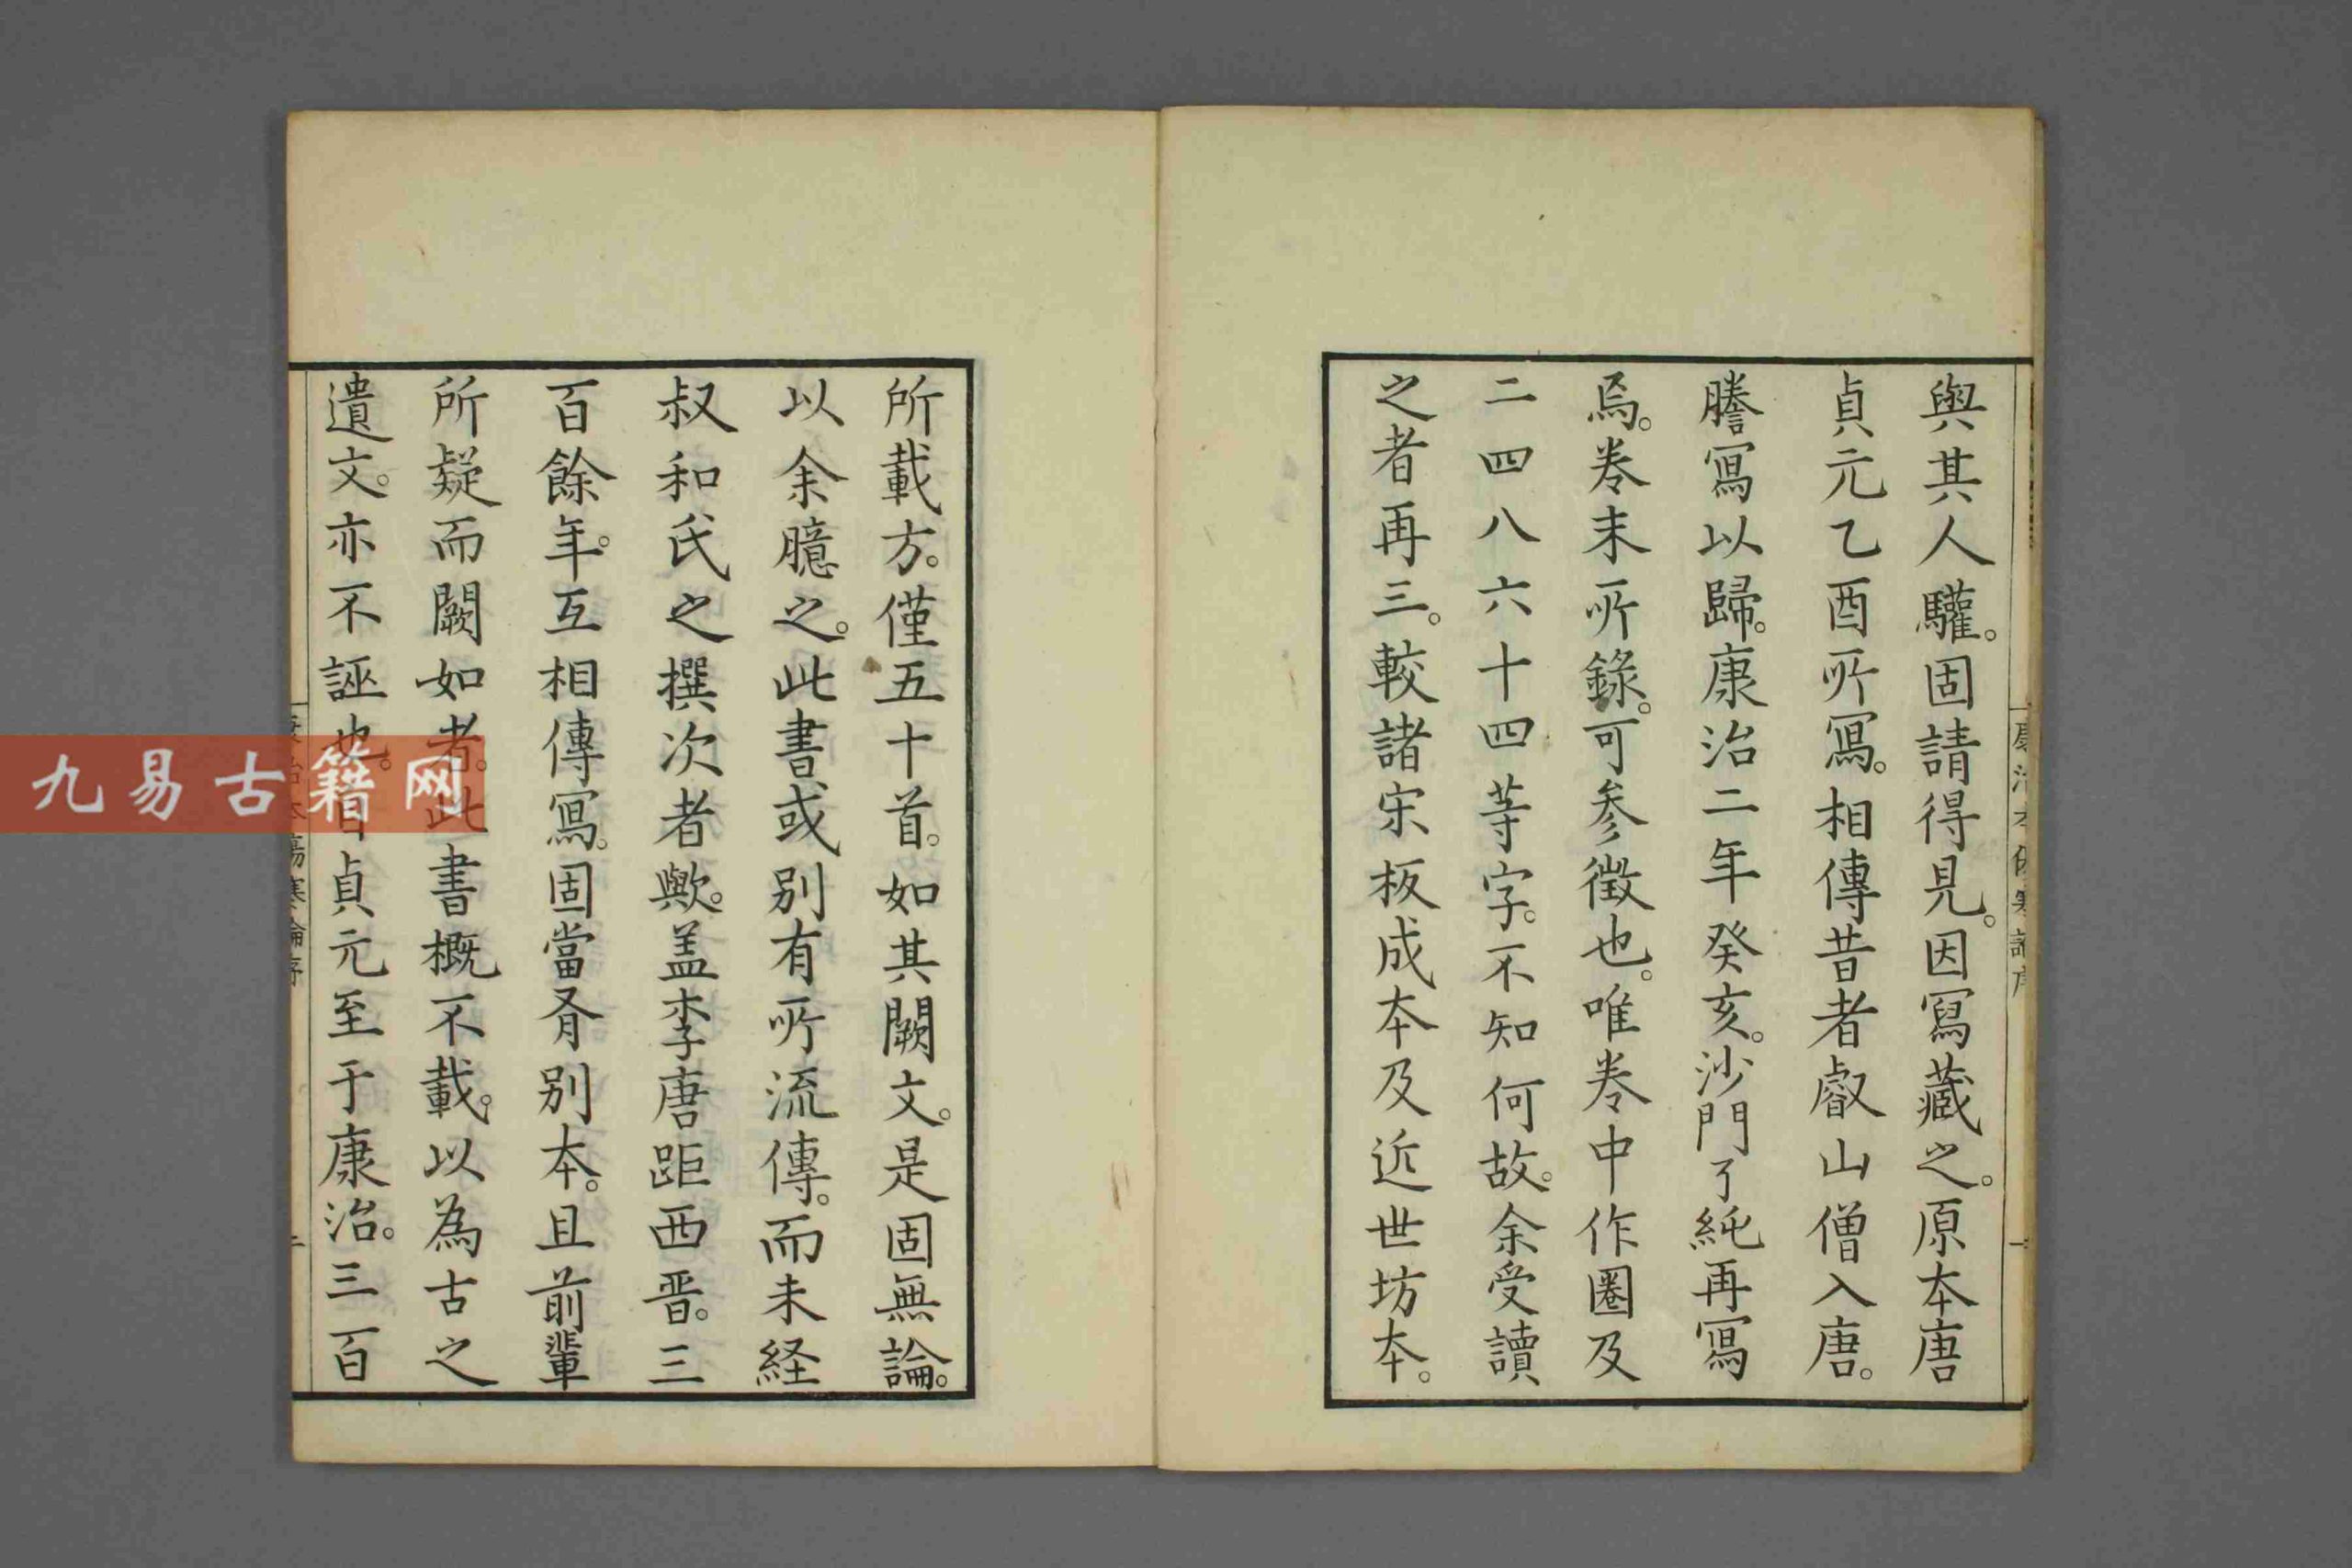 與其人驩。固請得見。因寫藏之。原本唐
貞元乙酉所寫。相傳昔者叡山僧入唐。
謄寫以歸。康治二年癸亥。沙門了純再寫
焉。卷末所錄。可參徵也。唯卷中作圈及
二四八六十四等字。不知何故。余受讀
之者再三。較諸宋板成本及近世坊本。
所載方。僅五十首。如其闕文。是固無論。
以余臆之。此書或別有所流傳。而未経
叔和氏之撰次者歟。盖李唐距西晋。三
百餘年。互相傳寫。固當有別本。且前輩
所疑而闕如者。此書概不載。以為古之
遺文。亦不誣也。自貞元至于康治。三百
康治本傷寒論序
一
康治本傷寒論序
二
九易古籍网